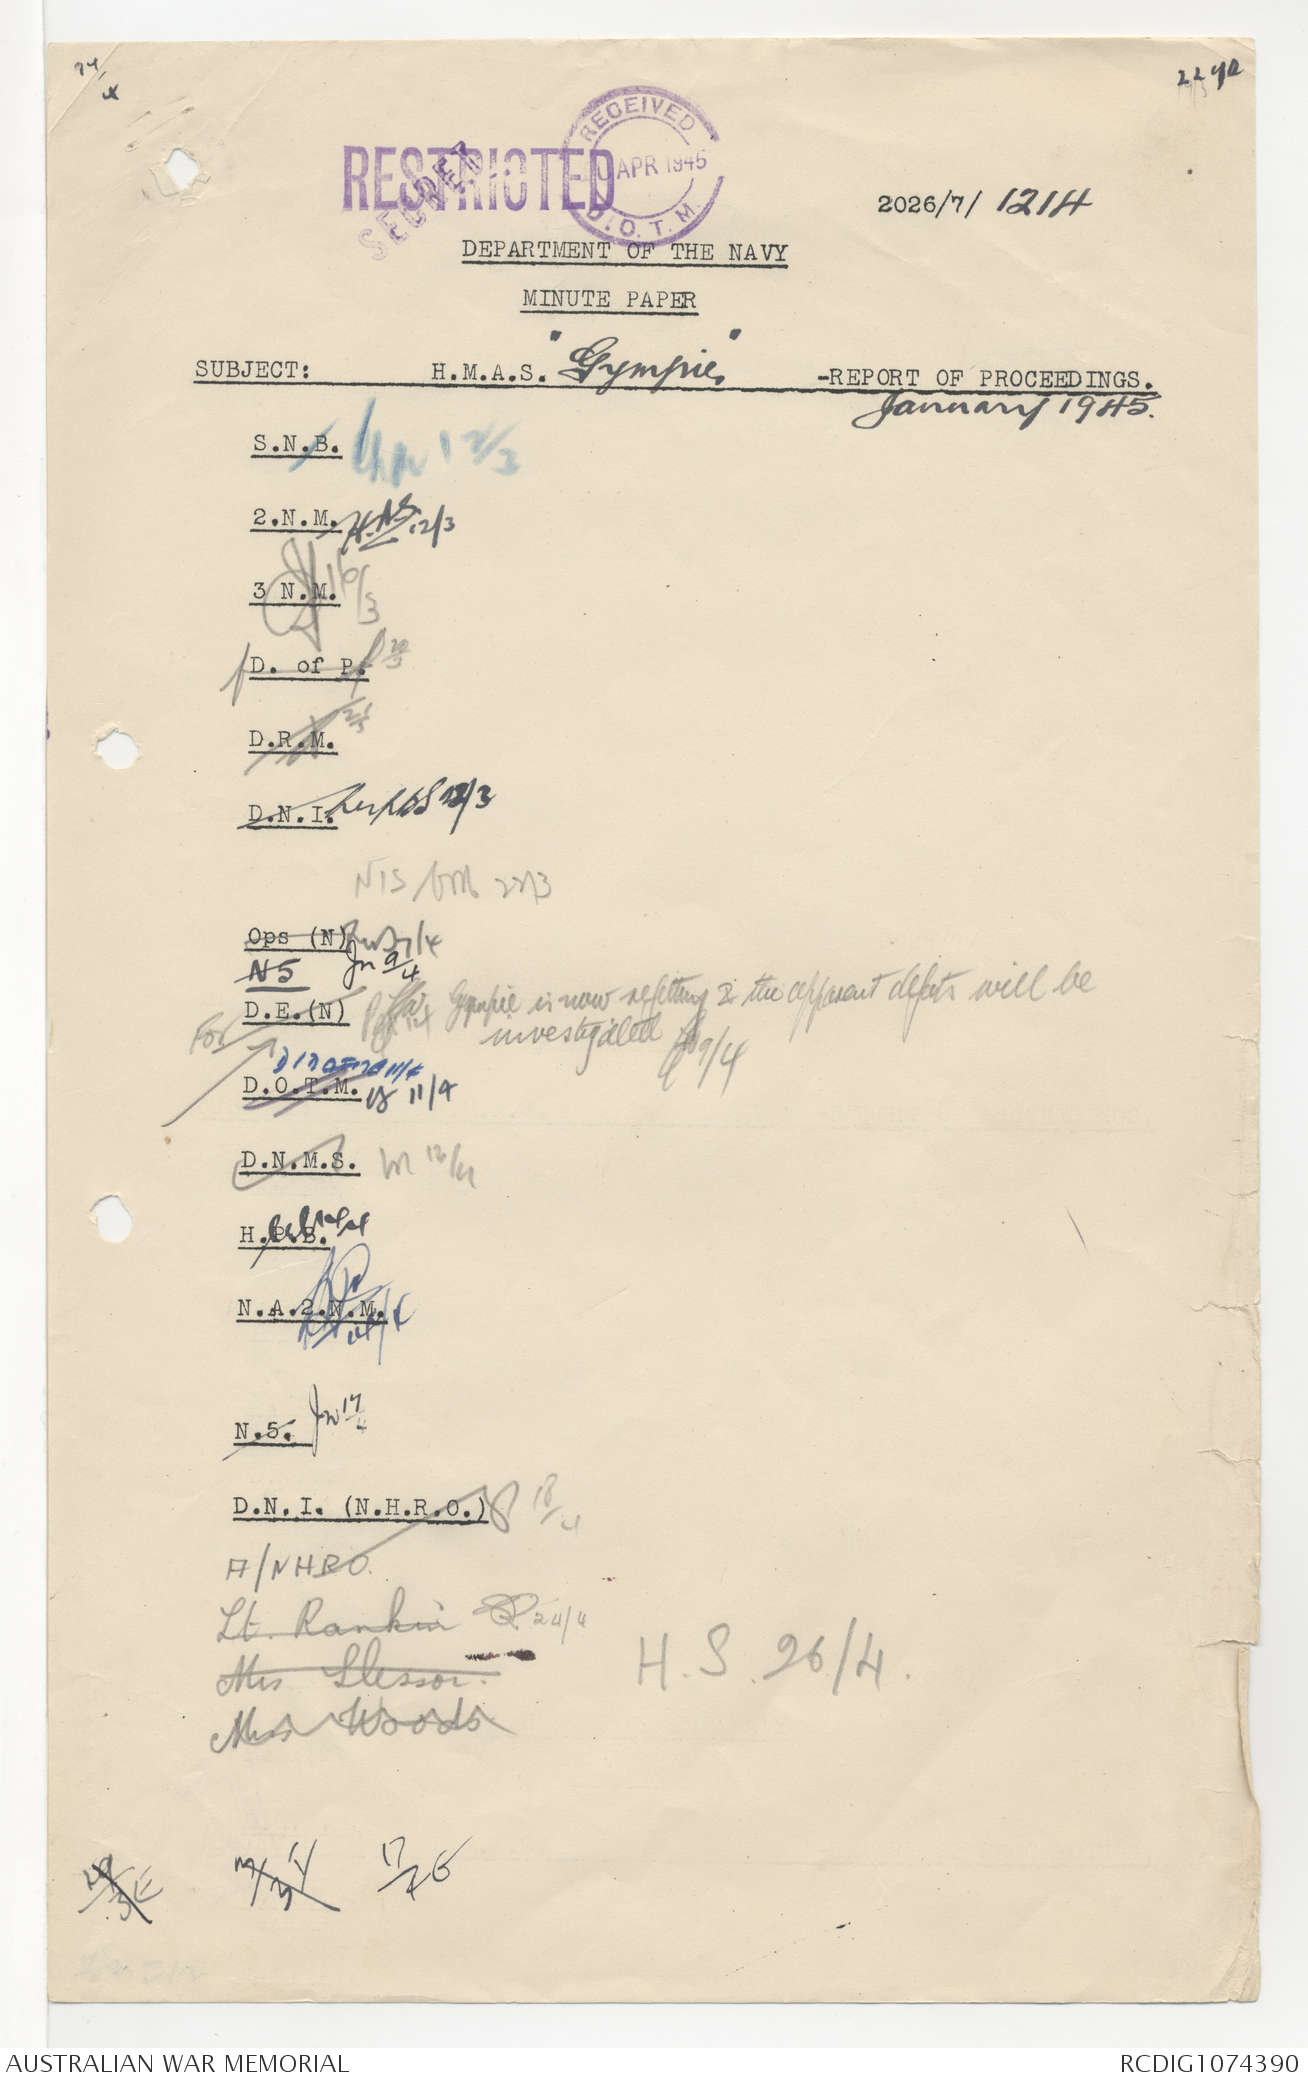 RESTRICTED
SECRET
RECEIVED
APR 1945
D.O.T.M.
2026/7/ 1214
DEPARTMENT OF THE NAVY
MINUTE PAPER
SUBJECT: H.M.A.S. "Gympie" -REPORT OF PROCEEDINGS.
January 1945.
S.N.B. 12/3
2.N.M. 12/3
3 N.M. 16/3
D. of P. 20/3
D.R.M. 21/3
D.N.I. 13/3
N15 22/3
Ops (N) 7/4
N5 9/4
D.E.(N) Gympie is now refitting & the apparent defects will be
investigated 9/4
For
D.O.T.M. 11/4
D.N.M.S. 12/4
H.P.B. 14/4
N.A.2.N.M. 14/4
N.5. 17/4
D.N.I. (N.H.R.O.) 18/4
A/NHRO.
Lt. Rankin 24/4
Mrs Slessor.
H.S. 26/4.
Miss Woods
AUSTRALIAN WAR MEMORIAL
RCDIG1074390